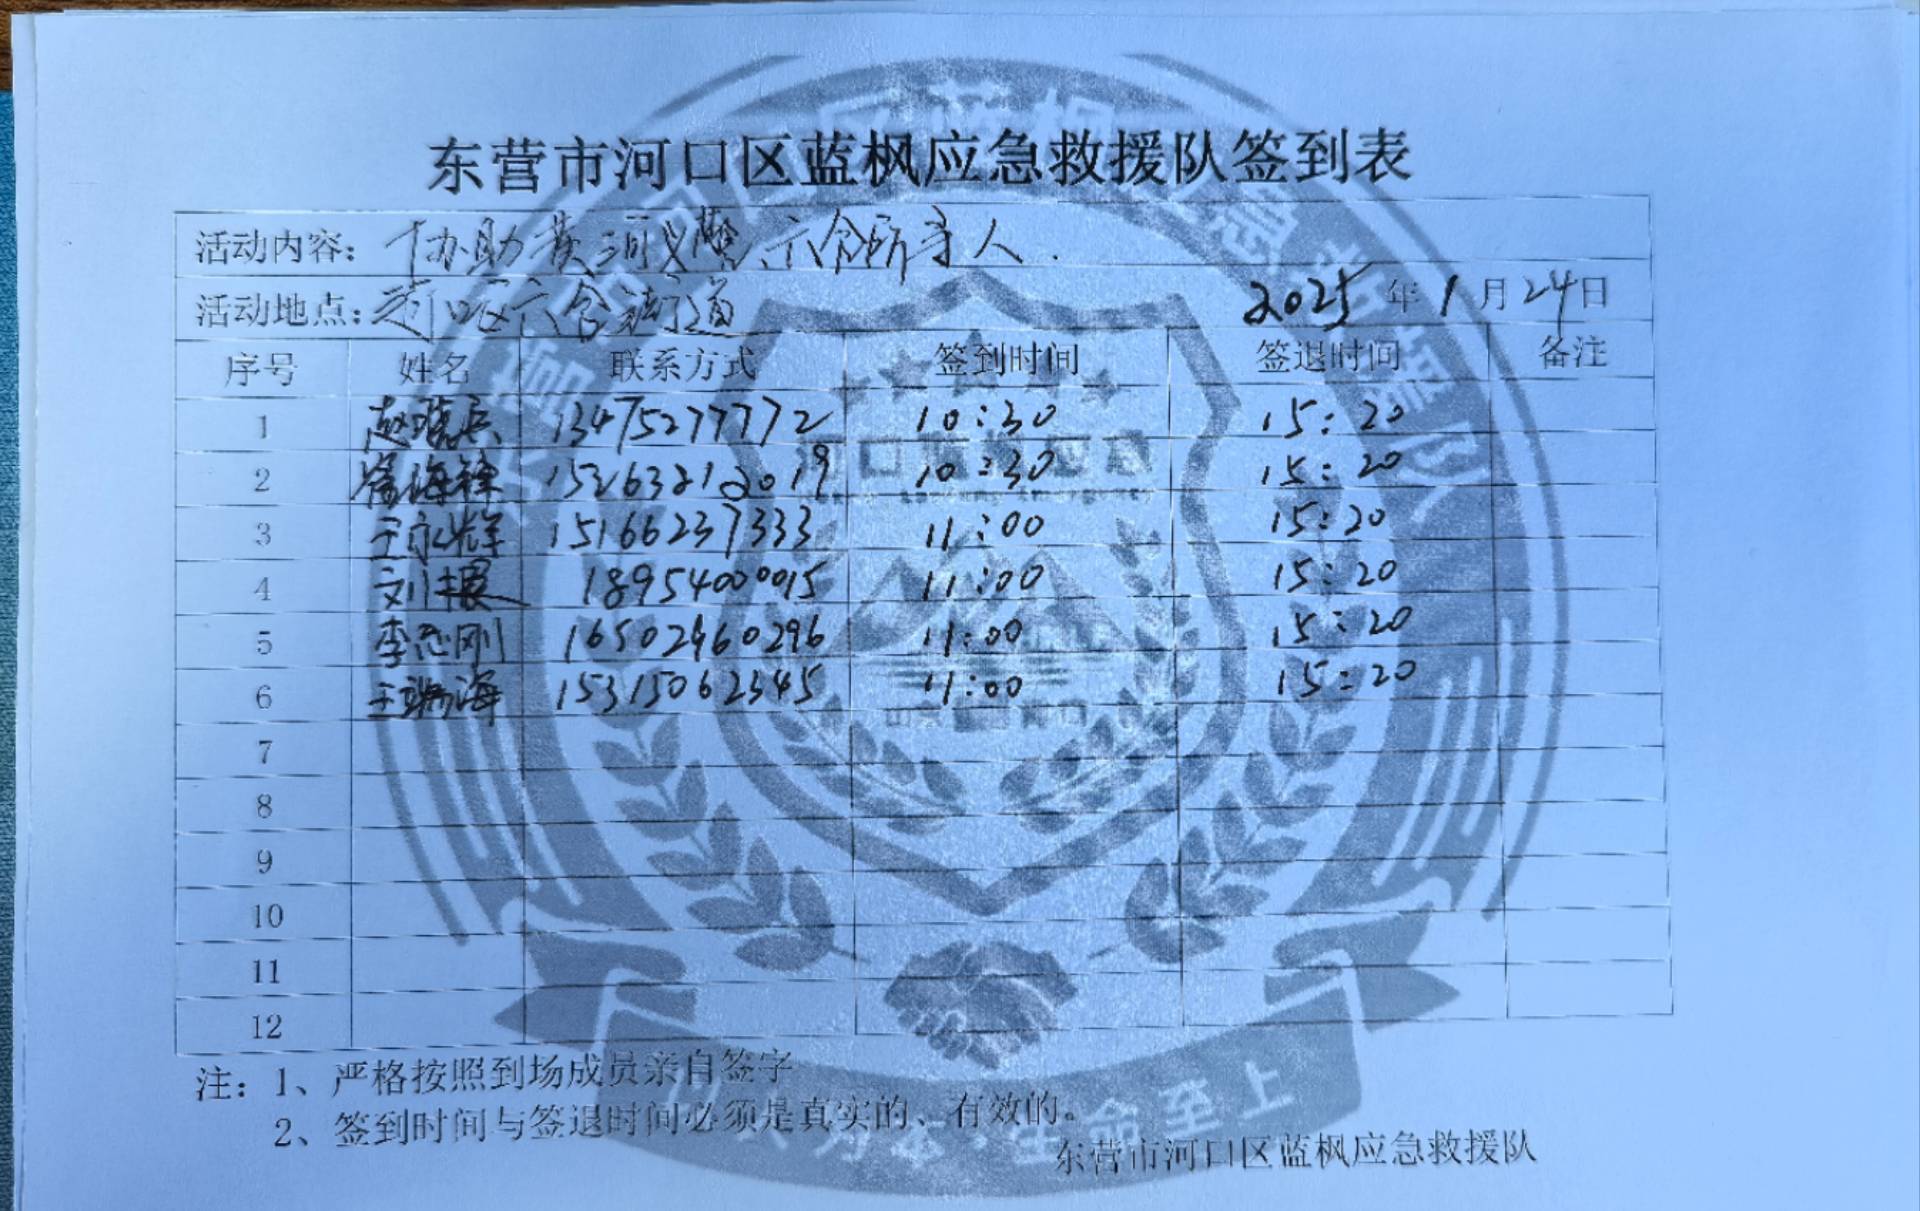 东营市河口区蓝枫应急救援队签到表
活动内容：协助黄河义警、六合所寻人.
活动地点：河口区六合街道 2025年1月24日
序号 姓名 联系方式 签到时间 签退时间 备注
1 赵晓兵 13475277772 10:30 15:20
2 海 15263212019 10:30 15:20
3 王永辉 15166237333 11:00 15:20
4 刘 18954000015 11:00 15:20
5 李志刚 16502960296 11:00 15:20
6 王瑞海 15315062345 11:00 15:20
7
8
9
10
11
12
注：1、严格按照到场成员亲自签字
2、签到时间与签退时间必须是真实的、有效的。
东营市河口区蓝枫应急救援队